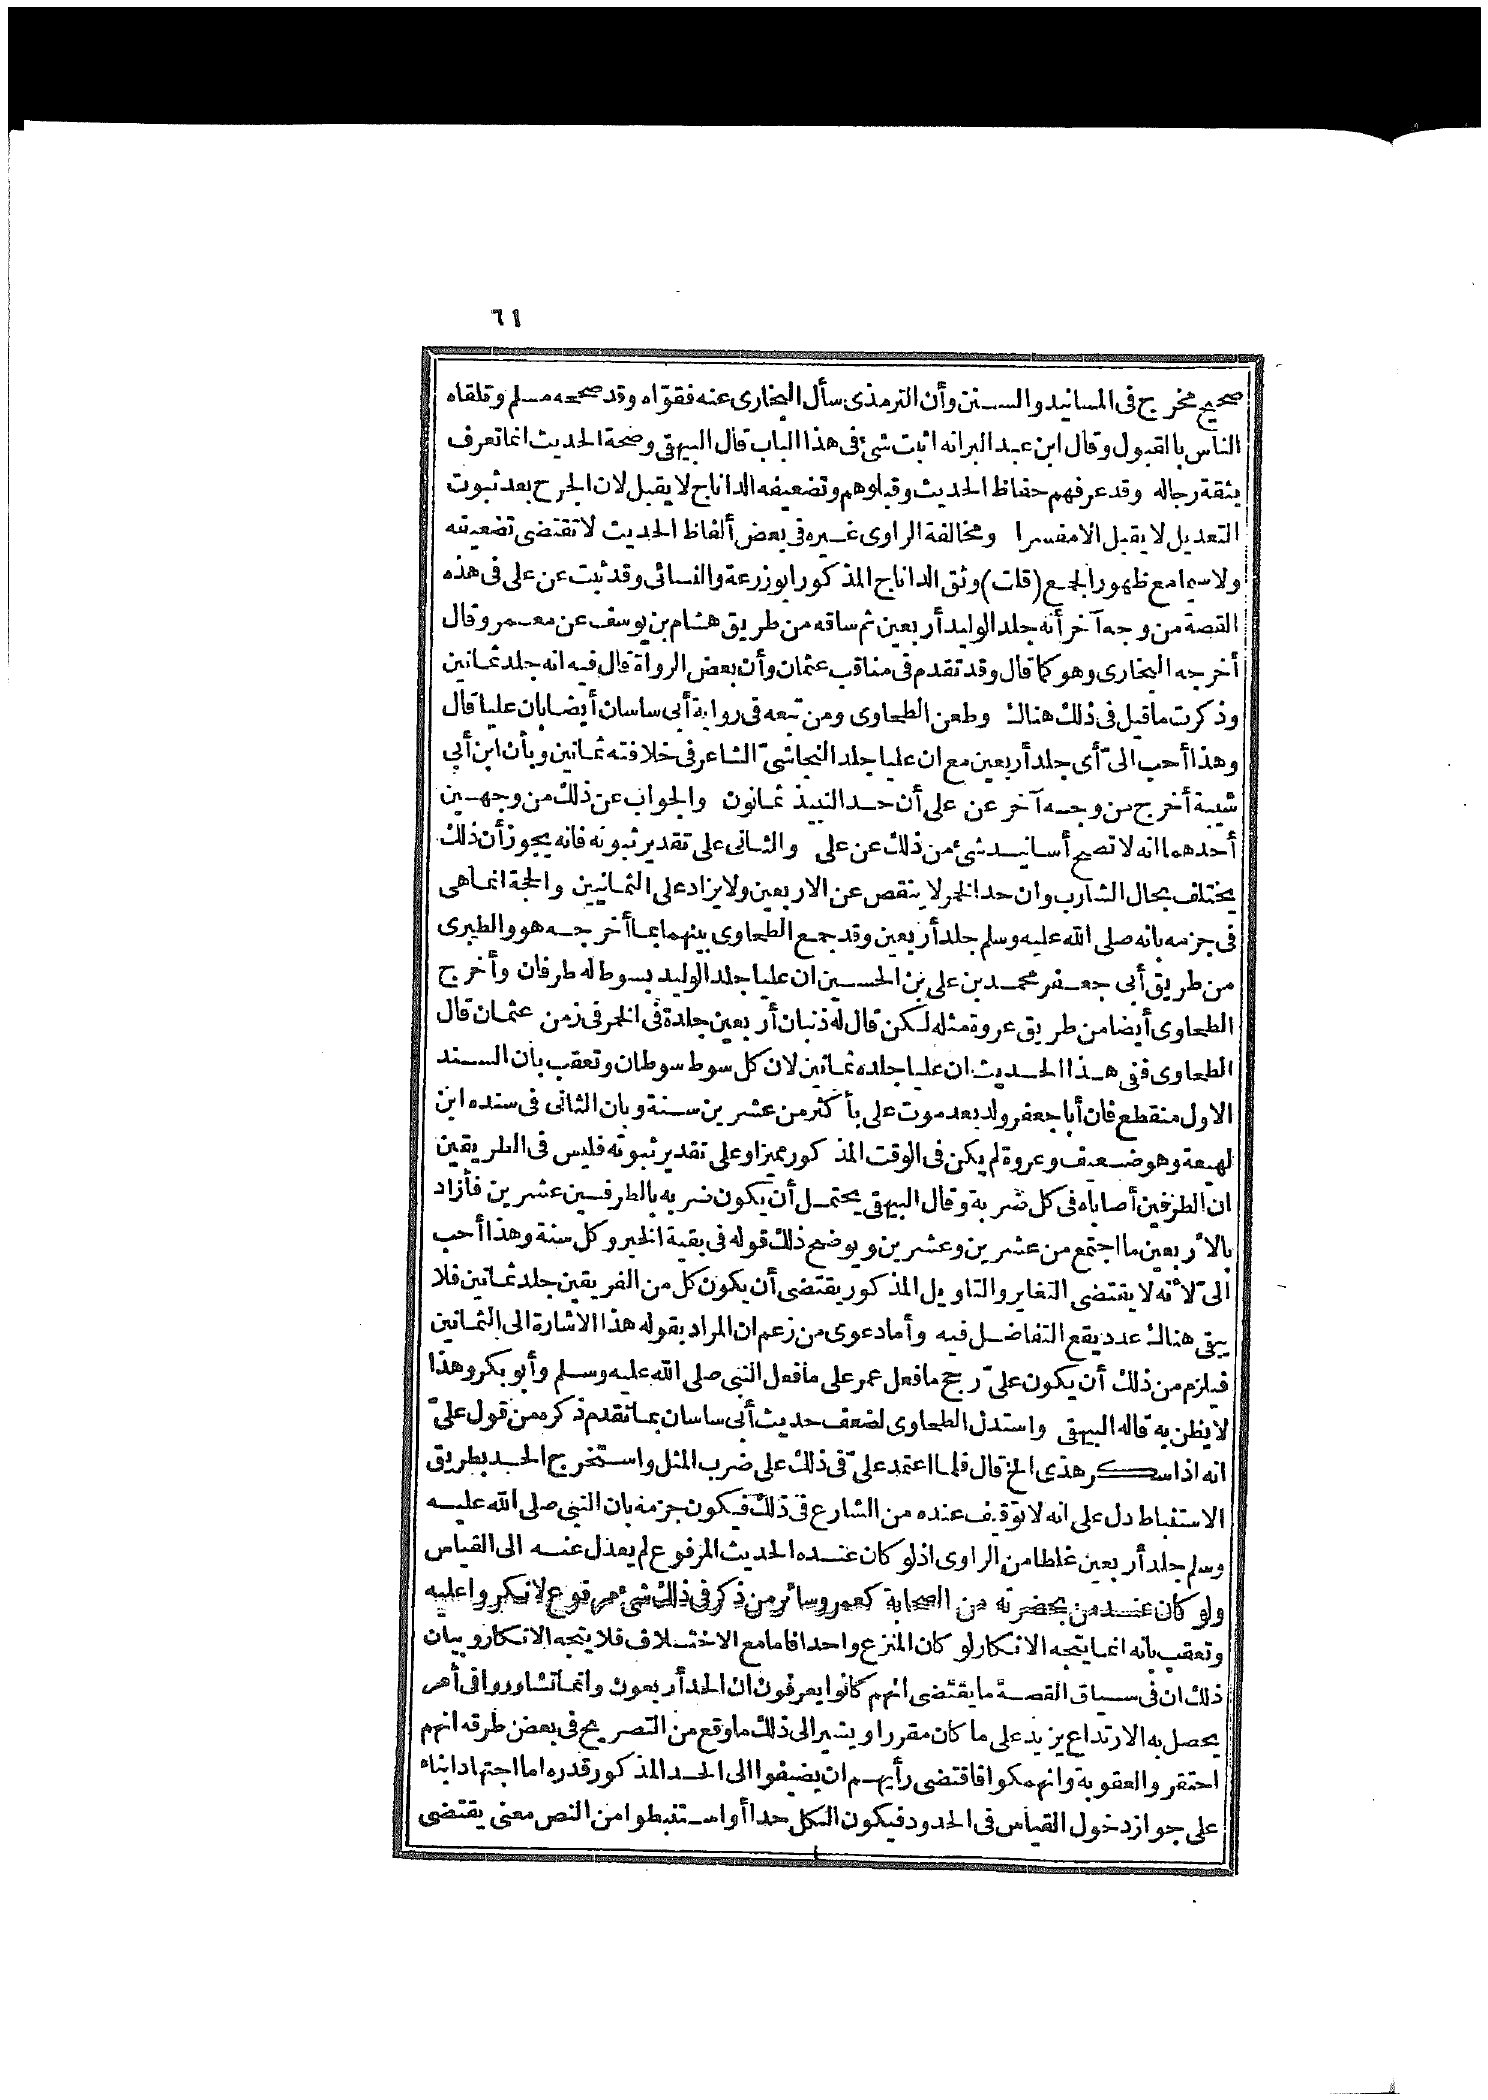 ٦١
صحيح مخرج فى المسانيد والسنن وأن الترمذى سأل البخارى عنه فقواه وقد صححه مسلم وتلقاه
الناس بالقبول وقال ابن عبد البر انه اثبت شئ فى هذا الباب قال البيهقى وصحة الحديث انما تعرف
بثقة رجاله وقد عرفهم حفاظ الحديث وقبلوهم وتضعيفه الداناج لا يقبل لان الجرح بعد ثبوت
التعديل لا يقبل الا مفسرا ومخالفة الراوى غيره فى بعض ألفاظ الحديث لا تقتضى تضعيفه
ولاسيما مع ظهور الجمع (قلت) وثق الداناج المذكور ابو زرعة والنسائى وقد ثبت عن على فى هذه
القصة من وجه آخر أنه جلد الوليد أربعين ثم ساقه من طريق هشام بن يوسف عن معمر وقال
أخرجه البخارى وهو كما قال وقد تقدم فى مناقب عثمان وأن بعض الرواة قال فيه انه جلد ثمانين
وذكرت ما قيل فى ذلك هناك وطعن الطحاوى ومن تبعه فى رواية أبى ساسان أيضا بان عليا قال
وهذا أحب الىّ أى جلد أربعين مع ان عليا جلد النجاشىّ الشاعر فى خلافته ثمانين وبأن ابن أبى
شيبة أخرج من وجه آخر عن على أن حد النبيذ ثمانون والجواب عن ذلك من وجهين
أحدهما انه لا تصح أسانيد شئ من ذلك عن على والثانى على تقدير ثبوته فانه يجوز أن ذلك
يختلف بحال الشارب وان حد الخمر لا ينقص عن الاربعين ولا يزاد على الثمانين والحجة انما هى
فى جزمه بانه صلى الله عليه وسلم جلد أربعين وقد جمع الطحاوى بينهما بما أخرجه هو والطبرى
من طريق أبى جعفر محمد بن على بن الحسين ان عليا جلد الوليد بسوط له طرفان وأخرج
الطحاوى أيضا من طريق عروة مثله لكن قال له ذنبان أربعين جلدة فى الخمر فى زمن عثمان قال
الطحاوى ففى هذا الحديث ان عليا جلده ثمانين لان كل سوط سوطان وتعقب بأن السند
الاول منقطع فان أبا جعفر ولد بعد موت على بأكثر من عشرين سنة وبان الثانى فى سنده ابن
لهيعة وهو ضعيف وعروة لم يكن فى الوقت المذكور مميزا وعلى تقدير ثبوته فليس فى الطريقين
ان الطرفين أصاباه فى كل ضربة وقال البيهقى يحتمل أن يكون ضربه بالطرفين عشرين فأزاد
بالأربعين ما اجتمع من عشرين وعشرين ويوضح ذلك قوله فى بقية الخبر وكل سنة وهذا أحب
الىّ لأنه لا يقتضى التغاير والتاويل المذكور يقتضى أن يكون كل من الفريقين جلد ثمانين فلا
يبقى هناك عدد يقع التفاضل فيه وأما دعوى من زعم ان المراد بقوله هذا الاشارة الى الثمانين
فيلزم من ذلك أن يكون علىّ رجح ما فعل عمر على ما فعل النبى صلى الله عليه وسلم وأبو بكر وهذا
لا يظن به قاله البيهقى واستدل الطحاوى لضعف حديث أبى ساسان بما تقدم ذكره من قول علىّ
انه اذا سكر هذى الخ قال فلما اعتمد علىّ فى ذلك على ضرب المثل واستخرج الحد بطريق
الاستنباط دل على انه لا توقيف عنده من الشارع فى ذلك فيكون جزمه بان النبى صلى الله عليه
وسلم جلد أربعين غلطا من الراوى اذ لو كان عنده الحديث المرفوع لم يعدل عنه الى القياس
ولو كان عند من بحضرته من الصحابة كعمر وسائر من ذكر فى ذلك شئ مرفوع لانكروا عليه
وتعقب بانه انما يتجه الانكار لو كان المنزع واحدا فاما مع الاختلاف فلا يتجه الانكار وبيان
ذلك ان فى سياق القصة ما يقتضى انهم كانوا يعرفون ان الحد أربعون وانما تشاوروا فى أمر
يحصل به الارتداع يزيد على ما كان مقررا ويشير الى ذلك ما وقع من التصريح فى بعض طرقه انهم
احتقروا العقوبة وانهمكوا فاقتضى رأيهم ان يضيفوا الى الحد المذكور قدره اما اجتهادا بناء
على جواز دخول القياس فى الحدود فيكون الكل حدا أو استنبطوا من النص معنى يقتضى